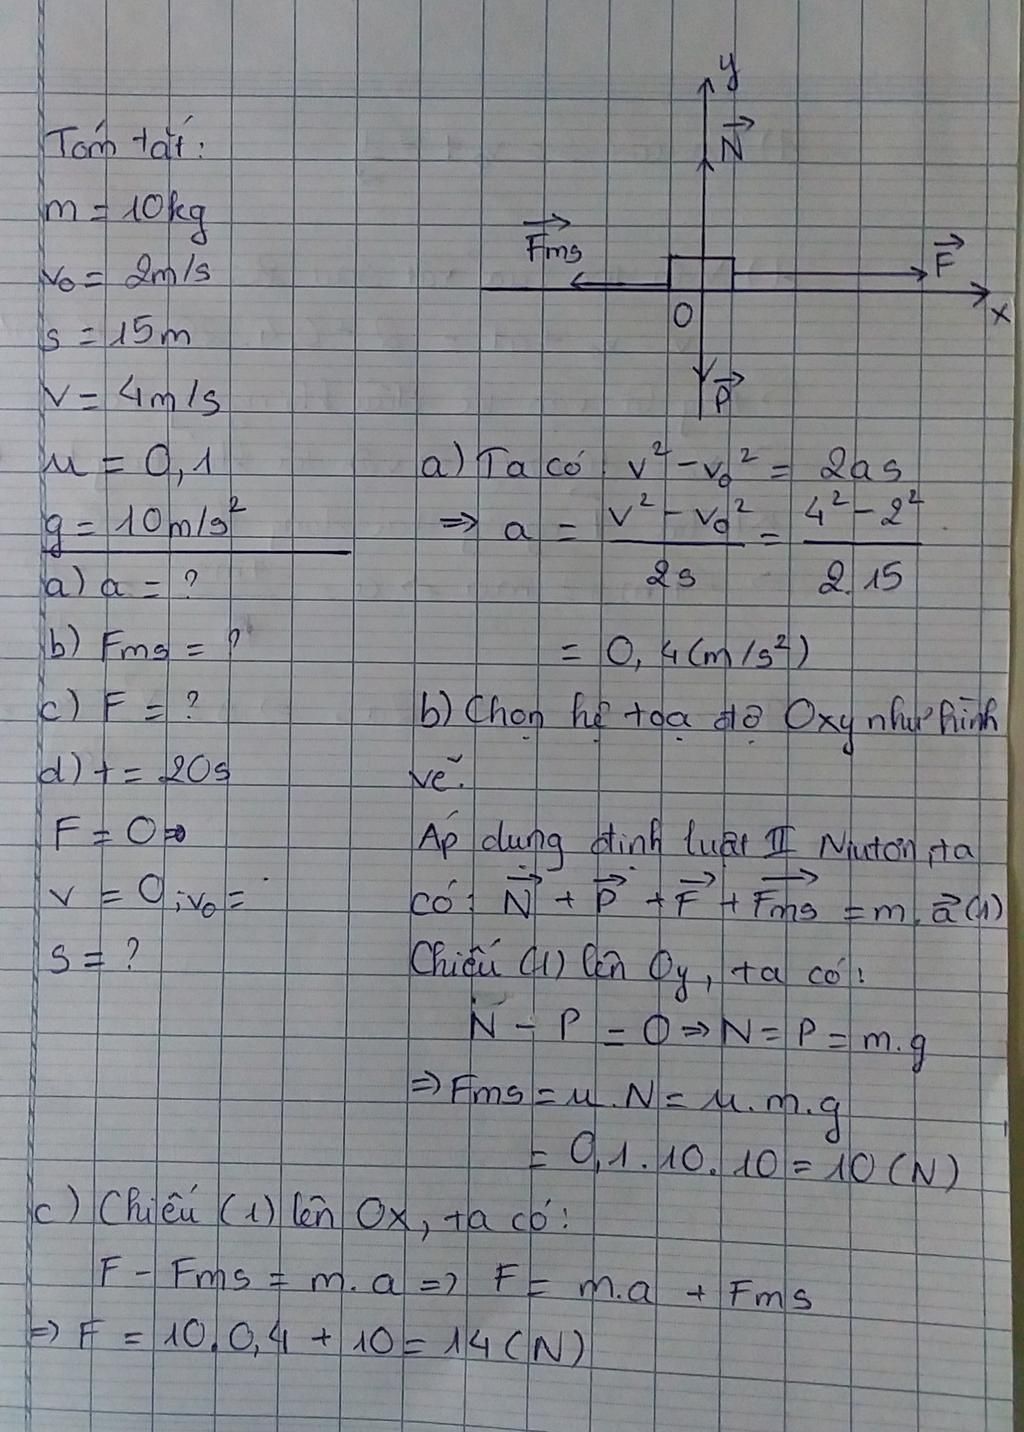 y
N
Tóm tắt:
m = 10kg
Fms
F
v₀ = 2m/s
O
x
s = 15m
P
v = 4m/s
μ = 0,1
g = 10m/s²
a) a = ?
b) Fms = ?
c) F = ?
d) t = 20s
F = 0 ⇒
v = 0; v₀ =
s = ?
a) Ta có v² - v₀² = 2as
⇒ a = (v² - v₀²)/2s = (4² - 2²)/2.15
= 0,4(m/s²)
b) Chọn hệ tọa độ Oxy như hình
vẽ.
Áp dụng định luật II Niutơn, ta
có: N + P + F + Fms = m.a (1)
Chiếu (1) lên Oy, ta có:
N - P = 0 ⇒ N = P = m.g
⇒ Fms = μ.N = μ.m.g
= 0,1.10.10 = 10 (N)
c) Chiếu (1) lên Ox, ta có:
F - Fms = m.a ⇒ F = m.a + Fms
⇒ F = 10.0,4 + 10 = 14 (N)